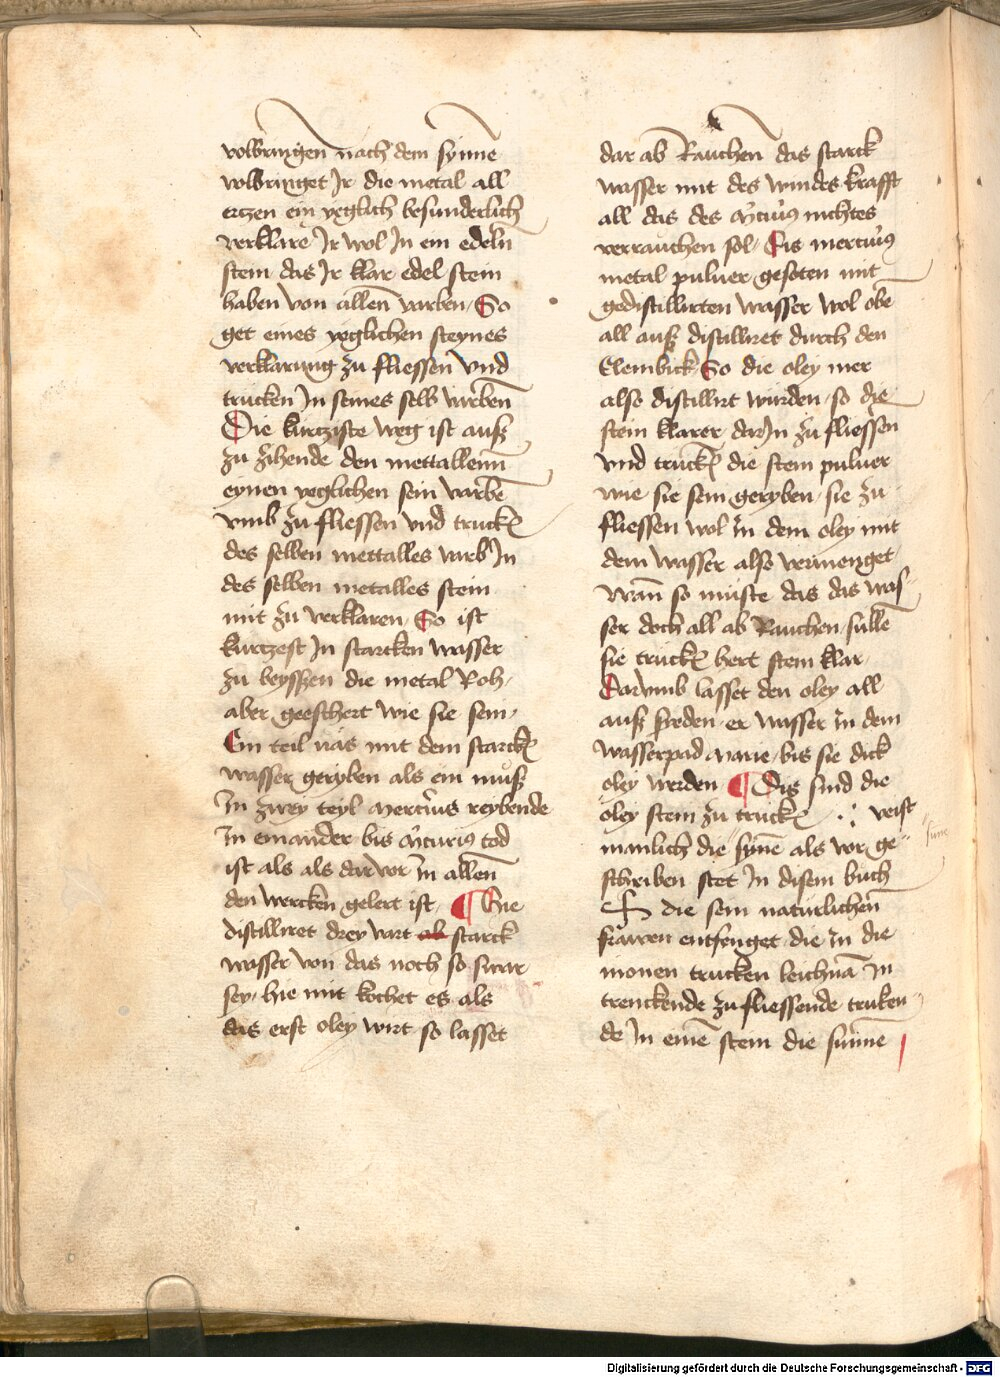 volbringen nach dem synne
volbringet Jr die metal all
ertzen ein yeglich besunderlich
verklare Jr wol Jn ein edeln
stein das Jr klar edel stein
haben von allen varben So
get eines yeglichen steynes
verklarung zu fliessen vnd
trucken Jn seines selb varben
Die kurtziste weg ist auß
zu zihende den mettallenn
eynen yeglichen sein varbe
vmb zu fliessen vnd truck
des selben mettalles varb Jn
des selben metalles stein
mit zu verklaren So ist
kurtzest Jn starcken wasser
zu beyssen die metal Roh
aber geeschert wie sie sein
Ein teil nas mit dem starck
wasser geryben als ein muß
Jn zwey teyl mercurius reybende
Jn einander bis mercurius tod
ist als als dar vor Jn allen
den wercken gelert ist ¶ Die
distilliret drey vart ab starck
wasser von das noch so swar
sey hie mit kochet es als
das erst oley wirt so lasset
dar ab Rauchen das starck
wasser mit des windes krafft
all das des mercurius nichtes
verrauchen sol Dis mercurius
metal puluer gesoten mit
gedistillirten wasser wol obe
all auß distilliret durch den
Elembick So die oley mer
also distillirt wurden so die
stein klarer dar Jn zu fliessen
vnd truck die stein puluer
wie sie sein geryben sie zu
fliessen wol in dem oley mit
dem wasser also vermenget
wann so muste das das was
ser doch all ab Rauchen sulle
sie truck hert stein klar
Darvmb lasset den oley all
auß sieden er wasser in dem
wasserpad marie bis sie dick
oley werden ¶ Dis sind die
oley stein zu truck veist
manlich die synne als vor ge
schriben stet Jn disem buch
die sein naturlichen
frawen entfenget die in die
monen trucken leichnam in
trenckende zu fliessende truken
de Jn einen stein die sunne
Digitalisierung gefördert durch die Deutsche Forschungsgemeinschaft - DFG